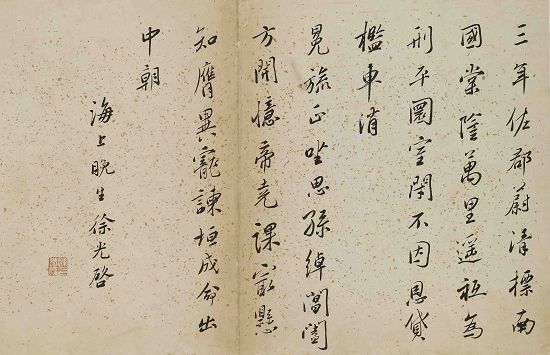 三年佐郡蔚清標南
國棠陰萬里遥祇為
刑平圜室閑不因恩貸
檻車消
冕旒正坐思孫綽閶闔
方開憶帝堯課㝡懸
知膺異寵諫垣成命出
中朝
海上晚生徐光啓